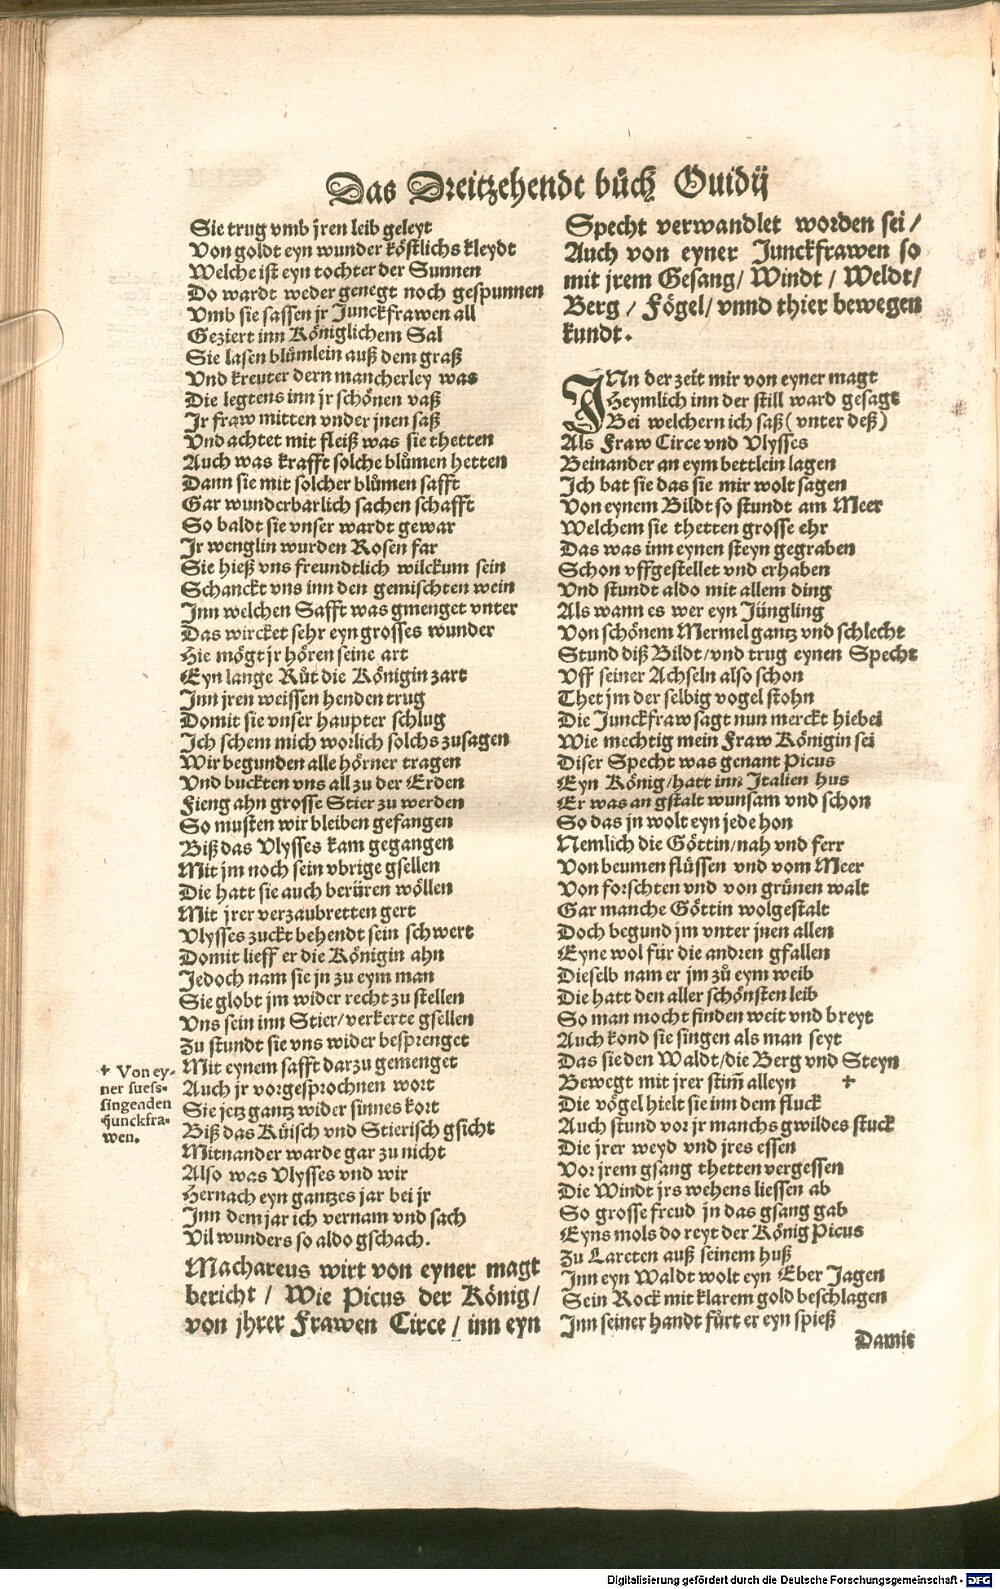 Das Dreitzehendt bůch Ouidij
Sie trug vmb jren leib geleyt
Von goldt eyn wunder köstlichs kleydt
Welche ist eyn tochter der Sunnen
Do wardt weder genegt noch gespunnen
Vmb sie sassen jr Junckfrawen all
Geziert inn Königlichem Sal
Sie lasen blůmlein auß dem graß
Vnd kreuter dern mancherley was
Die legtens inn jr schönen vaß
Jr fraw mitten vnder jnen saß
Vnd achtet mit fleiß was sie thetten
Auch was krafft solche blůmen hetten
Dann sie mit solcher blůmen safft
Gar wunderbarlich sachen schafft
So baldt sie vnser wardt gewar
Jr wenglin wurden Rosen far
Sie hieß vns freundtlich wilckum sein
Schanckt vns inn den gemischten wein
Inn welchen Safft was gmenget vnter
Das wircket sehr eyn grosses wunder
Hie mögt jr hören seine art
Eyn lange Růt die Königin zart
Inn jren weissen henden trug
Domit sie vnser haupter schlug
Ich schem mich worlich solchs zusagen
Wir begunden alle hörner tragen
Vnd buckten vns all zu der Erden
Fieng ahn grosse Stier zu werden
So musten wir bleiben gefangen
Biß das Vlysses kam gegangen
Mit jm noch sein vbrige gsellen
Die hatt sie auch berüren wöllen
Mit jrer verzaubretten gert
Vlysses zuckt behendt sein schwert
Domit lieff er die Königin ahn
Jedoch nam sie jn zu eym man
Sie globt jm wider recht zu stellen
Vns sein inn Stier/verkerte gsellen
Zu stundt sie vns wider besprenget
Mit eynem safft darzu gemenget
Auch jr vorgesprochnen wort
Sie jetz gantz wider sinnes kort
Biß das Küisch vnd Stierisch gsicht
Mitnander warde gar zu nicht
Also was Vlysses vnd wir
Hernach eyn gantzes jar bei jr
Inn dem jar ich vernam vnd sach
Vil wunders so aldo gschach.
Machareus wirt von eyner magt
bericht / Wie Picus der König/
von jhrer Frawen Circe / inn eyn
✝ Von ey-
ner suess-
singenden
junckfra-
wen.
Specht verwandlet worden sei /
Auch von eyner Junckfrawen so
mit jrem Gesang/ Windt / Weldt/
Berg / Fögel/ vnnd thier bewegen
kundt.
INn der zeit mir von eyner magt
Heymlich inn der still ward gesagt
Bei welchern ich saß ( vnter deß)
Als Fraw Circe vnd Vlysses
Beinander an eym bettlein lagen
Ich bat sie das sie mir wolt sagen
Von eynem Bildt so stundt am Meer
Welchem sie thetten grosse ehr
Das was inn eynen steyn gegraben
Schon vffgestellet vnd erhaben
Vnd stundt aldo mit allem ding
Als wann es wer eyn Jüngling
Von schönem Mermel gantz vnd schlecht
Stund diß Bildt/vnd trug eynen Specht
Vff seiner Achseln also schon
Thet jm der selbig vogel stohn
Die Junckfraw sagt nun merckt hiebei
Wie mechtig mein Fraw Königin sei
Diser Specht was genant Picus
Eyn König/hatt inn Italien hus
Er was an gstalt wunsam vnd schon
So das jn wolt eyn jede hon
Nemlich die Göttin/nah vnd ferr
Von beumen flüssen vnd vom Meer
Von forschten vnd von grünen walt
Gar manche Göttin wolgestalt
Doch begund jm vnter jnen allen
Eyne wol für die andren gfallen
Dieselb nam er jm zů eym weib
Die hatt den aller schönsten leib
So man mocht finden weit vnd breyt
Auch kond sie singen als man seyt
Das sie den Waldt/die Berg vnd Steyn
Bewegt mit jrer stim̄ alleyn ✝
Die vögel hielt sie inn dem fluck
Auch stund vor jr manchs gwildes stuck
Die jrer weyd vnd jres essen
Vor jrem gsang thetten vergessen
Die Windt jrs wehens liessen ab
So grosse freud jn das gsang gab
Eyns mols do reyt der König Picus
Zu Lareten auß seinem huß
Inn eyn Waldt wolt eyn Eber Jagen
Sein Rock mit klarem gold beschlagen
Inn seiner handt fürt er eyn spieß
Damit
Digitalisierung gefördert durch die Deutsche Forschungsgemeinschaft - DFG